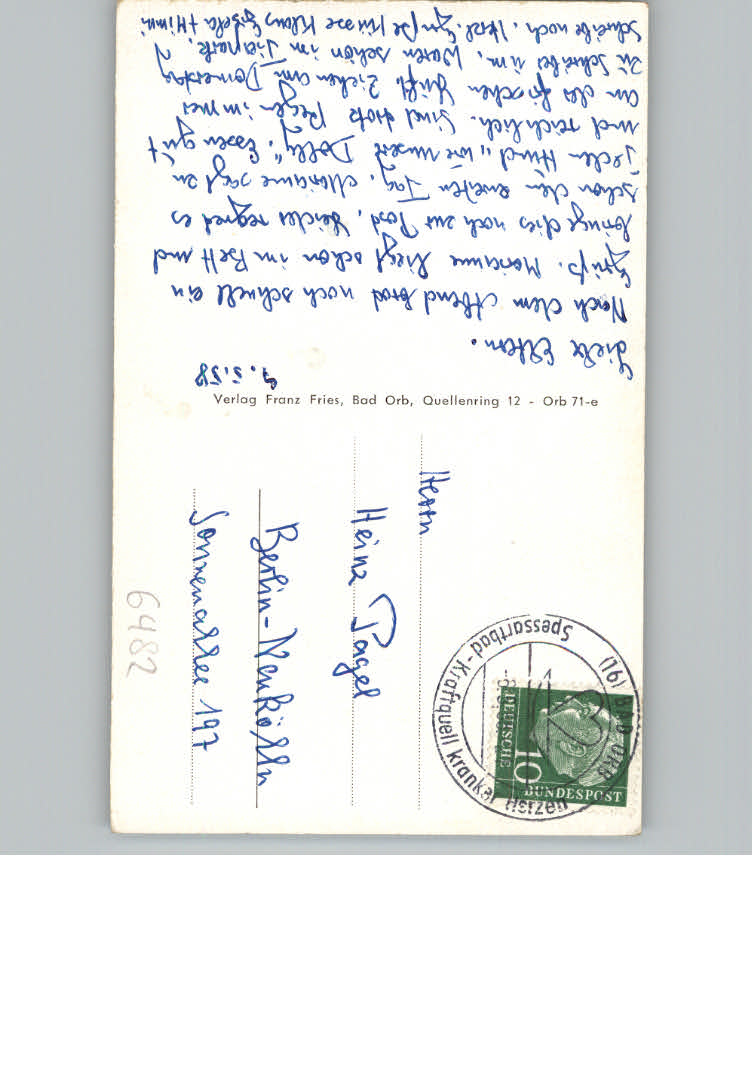 9.5.58
Liebe Eltern.
Nach dem Abendbrot noch schnell ein
Gruß. Marianne liegt schon im Bett und
bringe dies noch zur Post, leider regnet es
schon den zweiten Tag, Marianne sagt zu
jeden Hund „wie unsere Dolly“. Essen gut
und reichlich. Sind trotz Regen immer
an der frischen Luft. Ziehen am Donnerstag
zu Schreiber um, waren schon im Tierpark,
Schreibe noch. Herzl. Grüße Küsse Klaus Gisela +
Verlag Franz Fries, Bad Orb, Quellenring 12 - Orb 71-e
Herrn
Heinz Pagel
Berlin-Neukölln
Sonnenallee 197
6482
(16) BAD ORB
Spessartbad - Kraftquell kranker Herzen
DEUTSCHE
10
BUNDESPOST